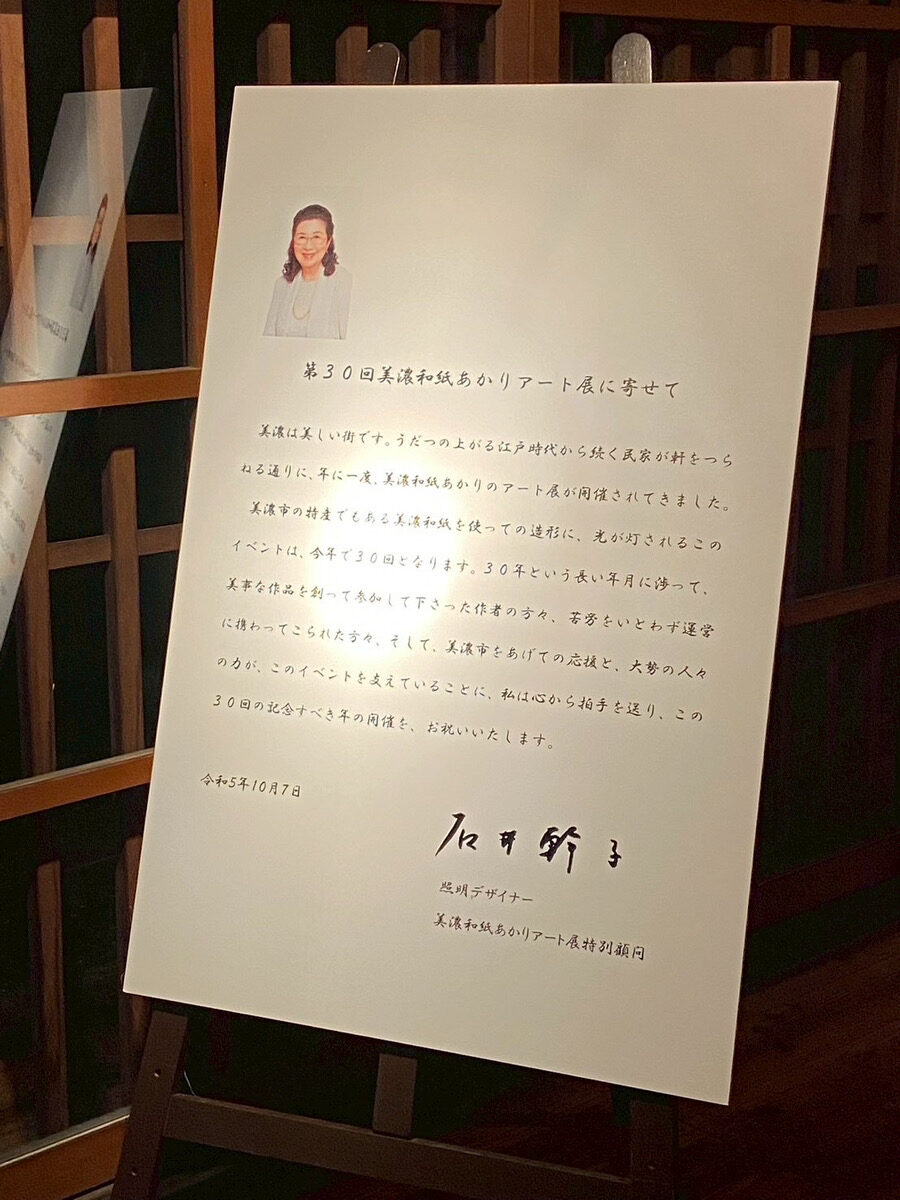 第３０回美濃和紙あかりアート展に寄せて
美濃は美しい街です。うだつの上がる江戸時代から続く民家が軒をつら
ねる通りに、年に一度、美濃和紙あかりのアート展が開催されてきました。
美濃市の特産でもある美濃和紙を使っての造形に、光が灯されるこの
イベントは、今年で３０回となります。３０年という長い年月に渉って、
美事な作品を創って参加して下さった作者の方々、苦労をいとわず運営
に携わってこられた方々、そして、美濃市をあげての応援と、大勢の人々
の力が、このイベントを支えていることに、私は心から拍手を送り、この
３０回の記念すべき年の開催を、お祝いいたします。
令和5年10月7日
石井幹子
照明デザイナー
美濃和紙あかりアート展特別顧問